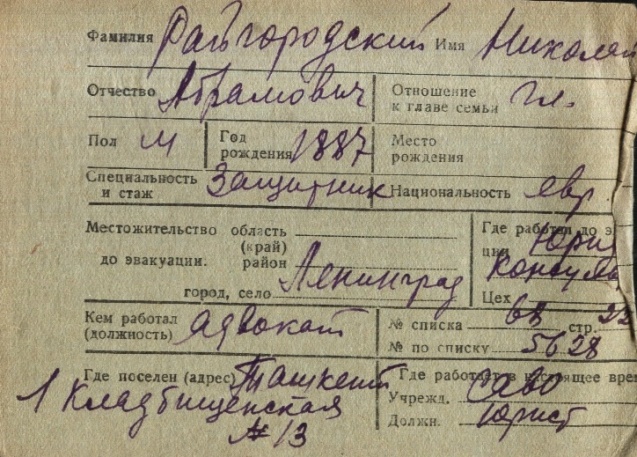 Фамилия Райгородский Имя Николай
Отчество Абрамович Отношение к главе семьи гл.
Пол М Год рождения 1887 Место рождения
Специальность и стаж Защитник Национальность евр.
Местожительство область Где работал до э
(край) Юрид
до эвакуации. район ции Консуль
город, село Ленинград Цех
Кем работал (должность) адвокат № списка 68 стр. 22
№ по списку 5628
Где поселен (адрес) Ташкент Где работает в настоящее врем
1 Кладбищенская Учрежд.
№ 13 Должн. юрист